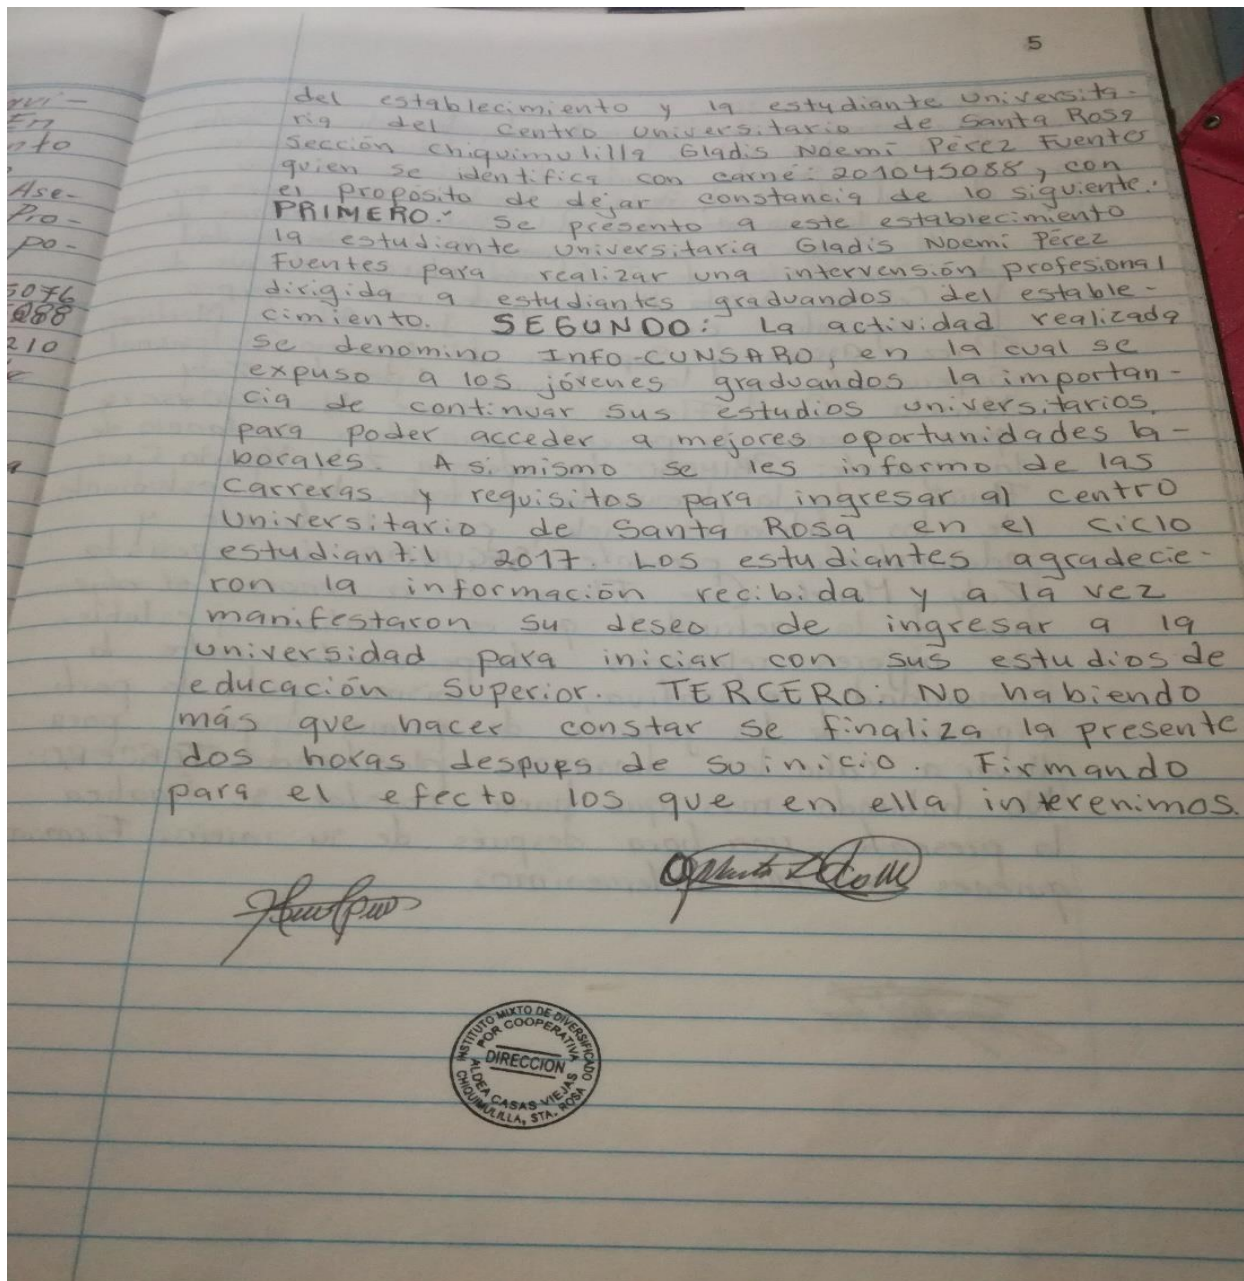 5
del establecimiento y la estudiante universita-
ria del Centro Universitario de Santa Rosa
Sección Chiquimulilla Gladis Noemi Pérez Fuentes
quien se identifica con carné: 201045088, con
el proposito de dejar constancia de lo siguiente:
PRIMERO: Se presento a este establecimiento
la estudiante Universitaria Gladis Noemi Pérez
Fuentes para realizar una intervensión profesional
dirigida a estudiantes graduandos del estable-
cimiento. SEGUNDO: La actividad realizada
se denomino INFO-CUNSARO, en la cual se
expuso a los jóvenes graduandos la importan-
cia de continuar sus estudios universitarios,
para poder acceder a mejores oportunidades la-
borales. Asi mismo se les informo de las
carreras y requisitos para ingresar al centro
Universitario de Santa Rosa en el ciclo
estudiantil 2017. Los estudiantes agradecie-
ron la información recibida y a la vez
manifestaron su deseo de ingresar a la
universidad para iniciar con sus estudios de
educación Superior. TERCERO: No habiendo
más que hacer constar se finaliza la presente
dos horas despues de su inicio. Firmando
para el efecto los que en ella interenimos.
INSTITUTO MIXTO DE DIVERSIFICADO
POR COOPERATIVA
DIRECCION
ALDEA CASAS VIEJAS
CHIQUIMULILLA, STA. ROSA
rvi-
En
nto
Ase-
Pro-
po-
5076
288
210